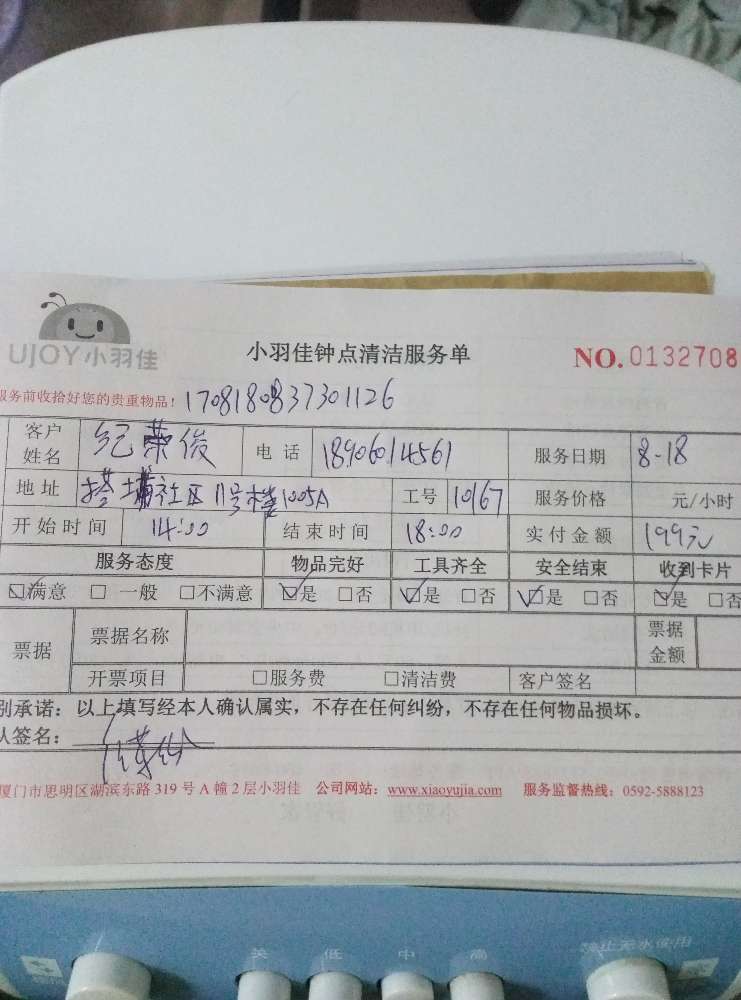 UJOY小羽佳
小羽佳钟点清洁服务单
NO. 0132708
服务前收拾好您的贵重物品! 1708180837301126
客户姓名 纪荣俊 电话 18906014561 服务日期 8-18
地址 塔埔社区11号楼1005A 工号 10167 服务价格 元/小时
开始时间 14:00 结束时间 18:00 实付金额 199元
服务态度 物品完好 工具齐全 安全结束 收到卡片
☑满意 □一般 □不满意 ☑是 □否 ☑是 □否 ☑是 □否 ☑是 □否
票据 票据名称 票据金额
开票项目 □服务费 □清洁费 客户签名
别承诺：以上填写经本人确认属实，不存在任何纠纷，不存在任何物品损坏。
人签名：
厦门市思明区湖滨东路 319 号 A 幢 2 层小羽佳 公司网站：www.xiaoyujia.com 服务监督热线：0592-5888123
关 低 中 高 禁止无水使用